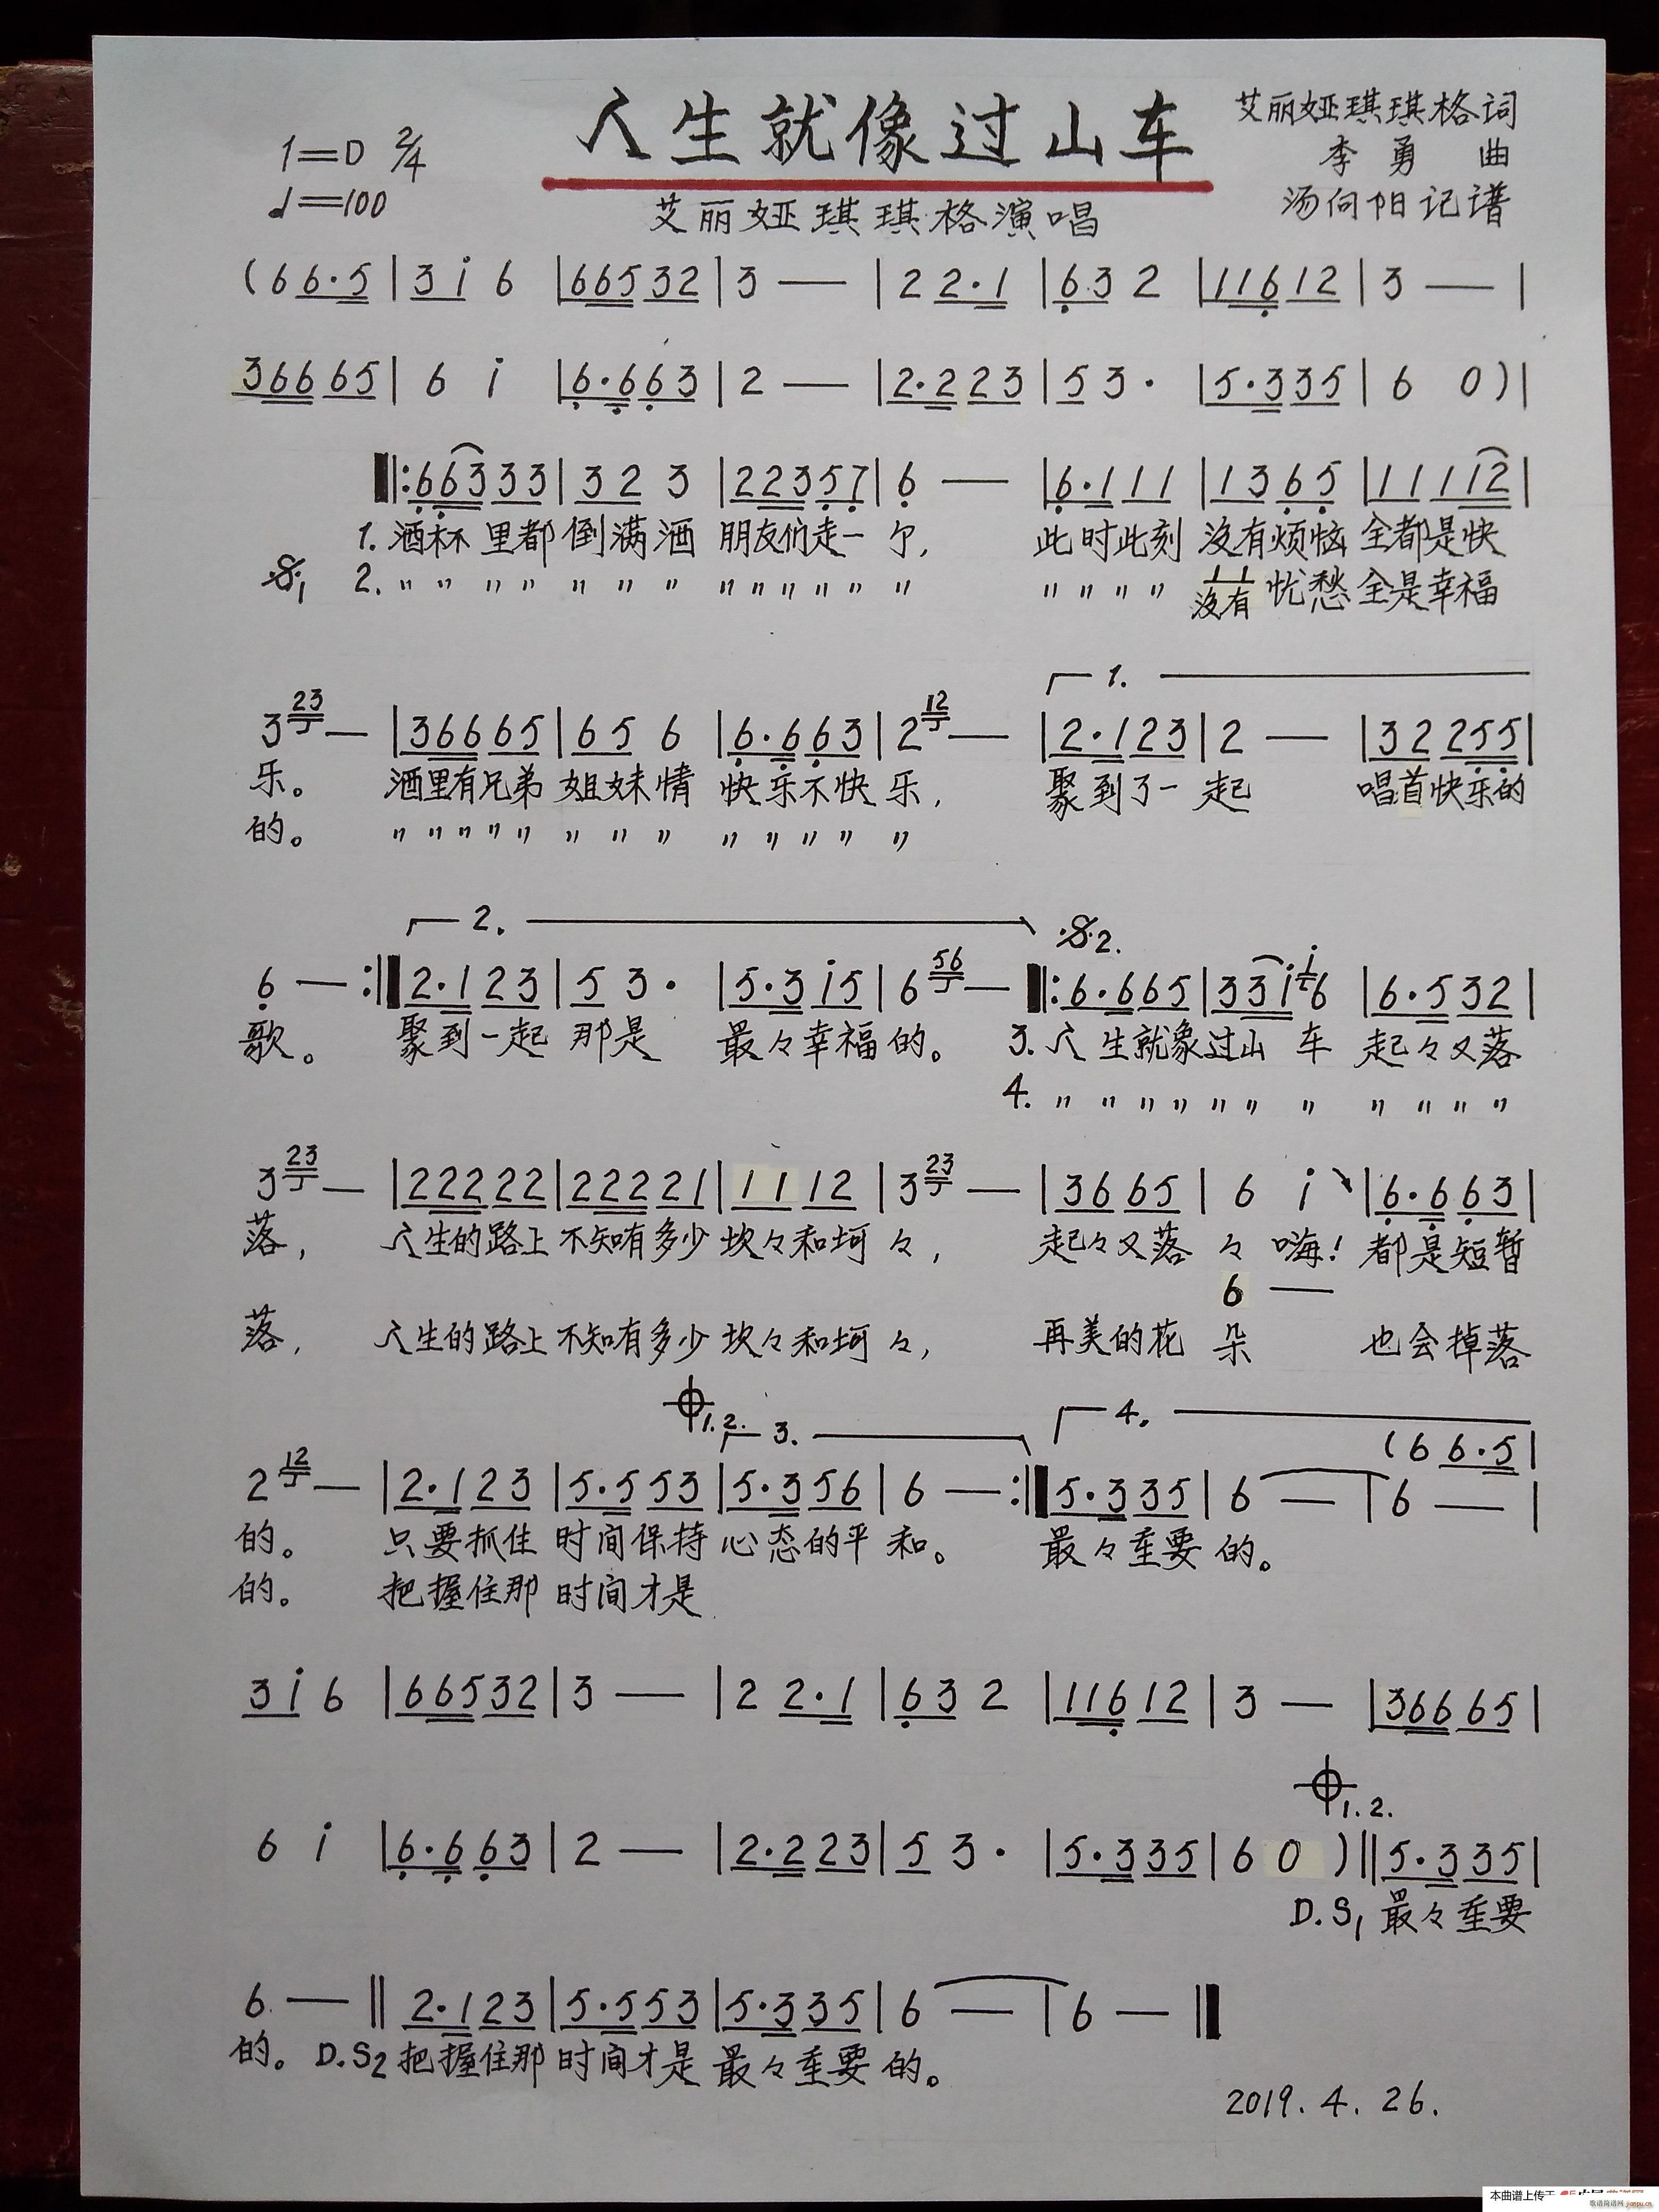 人生就像过山车
艾丽娅琪琪格词
1=D 2/4
李勇 曲
♩=100
汤向阳记谱
艾丽娅琪琪格演唱
(6 6·5 | 3 i 6 | 6 6 5 3 2 | 3 — | 2 2·1 | 6 3 2 | 1 1 6 1 2 | 3 — |
3 6 6 6 5 | 6 i | 6·6 6 3 | 2 — | 2·2 2 3 | 5 3· | 5·3 3 5 | 6 0 ) |
‖: 6 6 3 3 3 | 3 2 3 | 2 2 3 5 7 | 6 — | 6·1 1 1 | 1 3 6 5 | 1 1 1 1 2 |
1. 酒杯里都 倒满酒 朋友们走一个, 此时此刻 没有烦恼 全都是快
𝄋1 2. 〃 〃 〃 〃 〃 〃 〃 〃 〃 〃 〃 〃 〃 〃 〃 〃 〃 1 1 没有 忧愁 全是幸福
1.
3 23 — | 3 6 6 6 5 | 6 5 6 | 6·6 6 3 | 2 12 — | 2·1 2 3 | 2 — | 3 2 2 5 5 |
乐。 酒里有兄弟 姐妹情 快乐不快乐, 聚到了一起 唱首快乐的
的。 〃 〃 〃 〃 〃 〃 〃 〃 〃 〃 〃 〃 〃
2. 𝄋2.
6 — :‖ 2·1 2 3 | 5 3· | 5·3 i 5 | 6 56 — ‖: 6·6 6 5 | 3 3 i i 6 | 6·5 3 2 |
歌。 聚到一起 那是 最々幸福的。 3. 人生就象过山车 起々又落
4. 〃 〃 〃 〃 〃 〃 〃 〃 〃 〃 〃
3 23 — | 2 2 2 2 2 | 2 2 2 2 1 | 1 1 1 2 | 3 23 — | 3 6 6 5 | 6 i | 6·6 6 3 |
落, 人生的路上 不知有多少 坎々和坷々, 起々又落々 嗨! 都是短暂
6 —
落, 人生的路上 不知有多少 坎々和坷々, 再美的花朵 也会掉落
𝄌1.2. 3. 4.
(6 6·5 |
2 12 — | 2·1 2 3 | 5·5 5 3 | 5·3 5 6 | 6 — :‖ 5·3 3 5 | 6 — | 6 — |
的。 只要抓住 时间保持 心态的平和。 最々重要的。
的。 把握住那 时间才是
3 i 6 | 6 6 5 3 2 | 3 — | 2 2·1 | 6 3 2 | 1 1 6 1 2 | 3 — | 3 6 6 6 5 |
𝄌1.2.
6 i | 6·6 6 3 | 2 — | 2·2 2 3 | 5 3· | 5·3 3 5 | 6 0 ) ‖ 5·3 3 5 |
D.S1 最々重要
6 — ‖ 2·1 2 3 | 5·5 5 3 | 5·3 3 5 | 6 — | 6 — ‖
的。 D.S2 把握住那 时间才是 最々重要的。
2019.4.26.
本曲谱上传于
歌谱简谱网 jianpu.cn